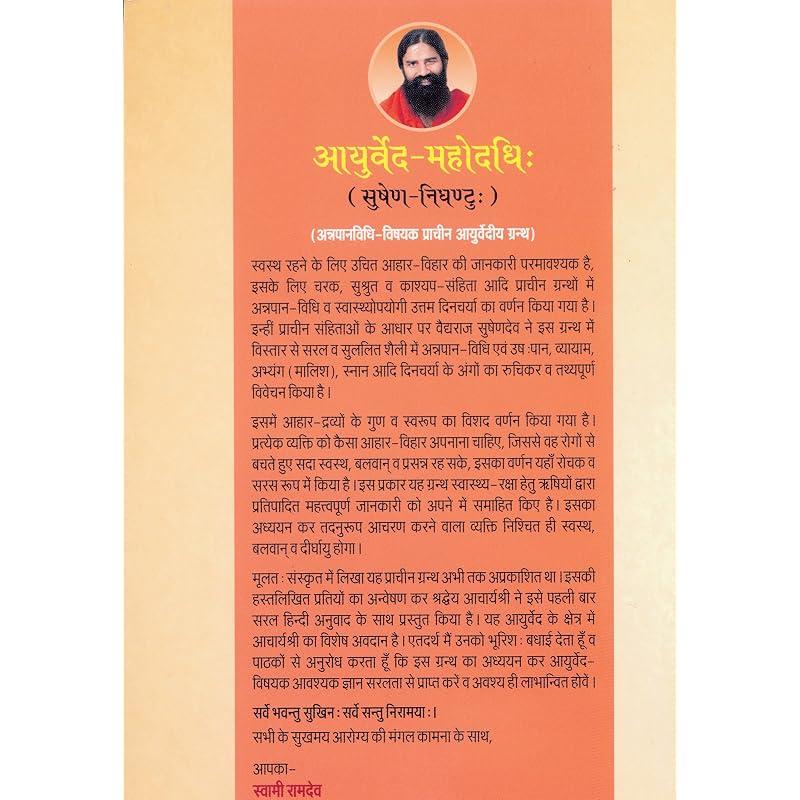 आयुर्वेद-महोदधिः
( सुषेण-निघण्टुः )
(अन्नपानविधि-विषयक प्राचीन आयुर्वेदीय ग्रन्थ)
स्वस्थ रहने के लिए उचित आहार-विहार की जानकारी परमावश्यक है,
इसके लिए चरक, सुश्रुत व काश्यप-संहिता आदि प्राचीन ग्रन्थों में
अन्नपान-विधि व स्वास्थ्योपयोगी उत्तम दिनचर्या का वर्णन किया गया है।
इन्हीं प्राचीन संहिताओं के आधार पर वैद्यराज सुषेणदेव ने इस ग्रन्थ में
विस्तार से सरल व सुललित शैली में अन्नपान-विधि एवं उषःपान, व्यायाम,
अभ्यंग (मालिश), स्नान आदि दिनचर्या के अंगों का रुचिकर व तथ्यपूर्ण
विवेचन किया है।
इसमें आहार-द्रव्यों के गुण व स्वरूप का विशद वर्णन किया गया है।
प्रत्येक व्यक्ति को कैसा आहार-विहार अपनाना चाहिए, जिससे वह रोगों से
बचते हुए सदा स्वस्थ, बलवान् व प्रसन्न रह सके, इसका वर्णन यहाँ रोचक व
सरस रूप में किया है। इस प्रकार यह ग्रन्थ स्वास्थ्य-रक्षा हेतु ऋषियों द्वारा
प्रतिपादित महत्त्वपूर्ण जानकारी को अपने में समाहित किए है। इसका
अध्ययन कर तदनुरूप आचरण करने वाला व्यक्ति निश्चित ही स्वस्थ,
बलवान् व दीर्घायु होगा।
मूलतः संस्कृत में लिखा यह प्राचीन ग्रन्थ अभी तक अप्रकाशित था। इसकी
हस्तलिखित प्रतियों का अन्वेषण कर श्रद्धेय आचार्यश्री ने इसे पहली बार
सरल हिन्दी अनुवाद के साथ प्रस्तुत किया है। यह आयुर्वेद के क्षेत्र में
आचार्यश्री का विशेष अवदान है। एतदर्थ मैं उनको भूरिशः बधाई देता हूँ व
पाठकों से अनुरोध करता हूँ कि इस ग्रन्थ का अध्ययन कर आयुर्वेद-
विषयक आवश्यक ज्ञान सरलता से प्राप्त करें व अवश्य ही लाभान्वित होवें।
सर्वे भवन्तु सुखिनः सर्वे सन्तु निरामयाः।
सभी के सुखमय आरोग्य की मंगल कामना के साथ,
आपका-
स्वामी रामदेव